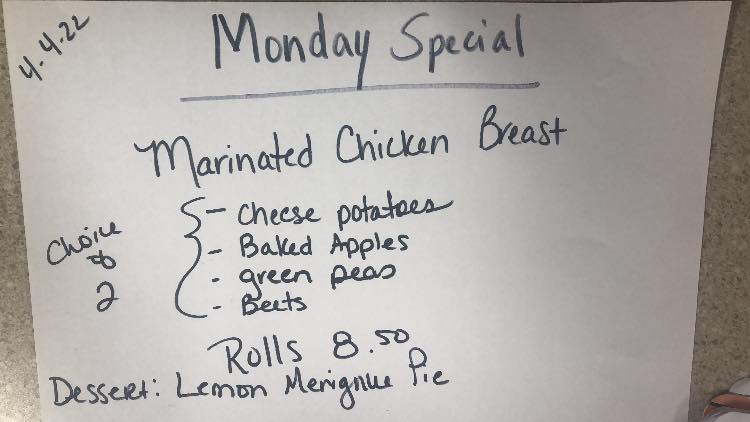 4.4.22
Monday Special
Marinated Chicken Breast
Choice of 2
- Cheese potatoes
- Baked Apples
- green peas
- Beets
Rolls 8.50
Dessert: Lemon Merignue Pie